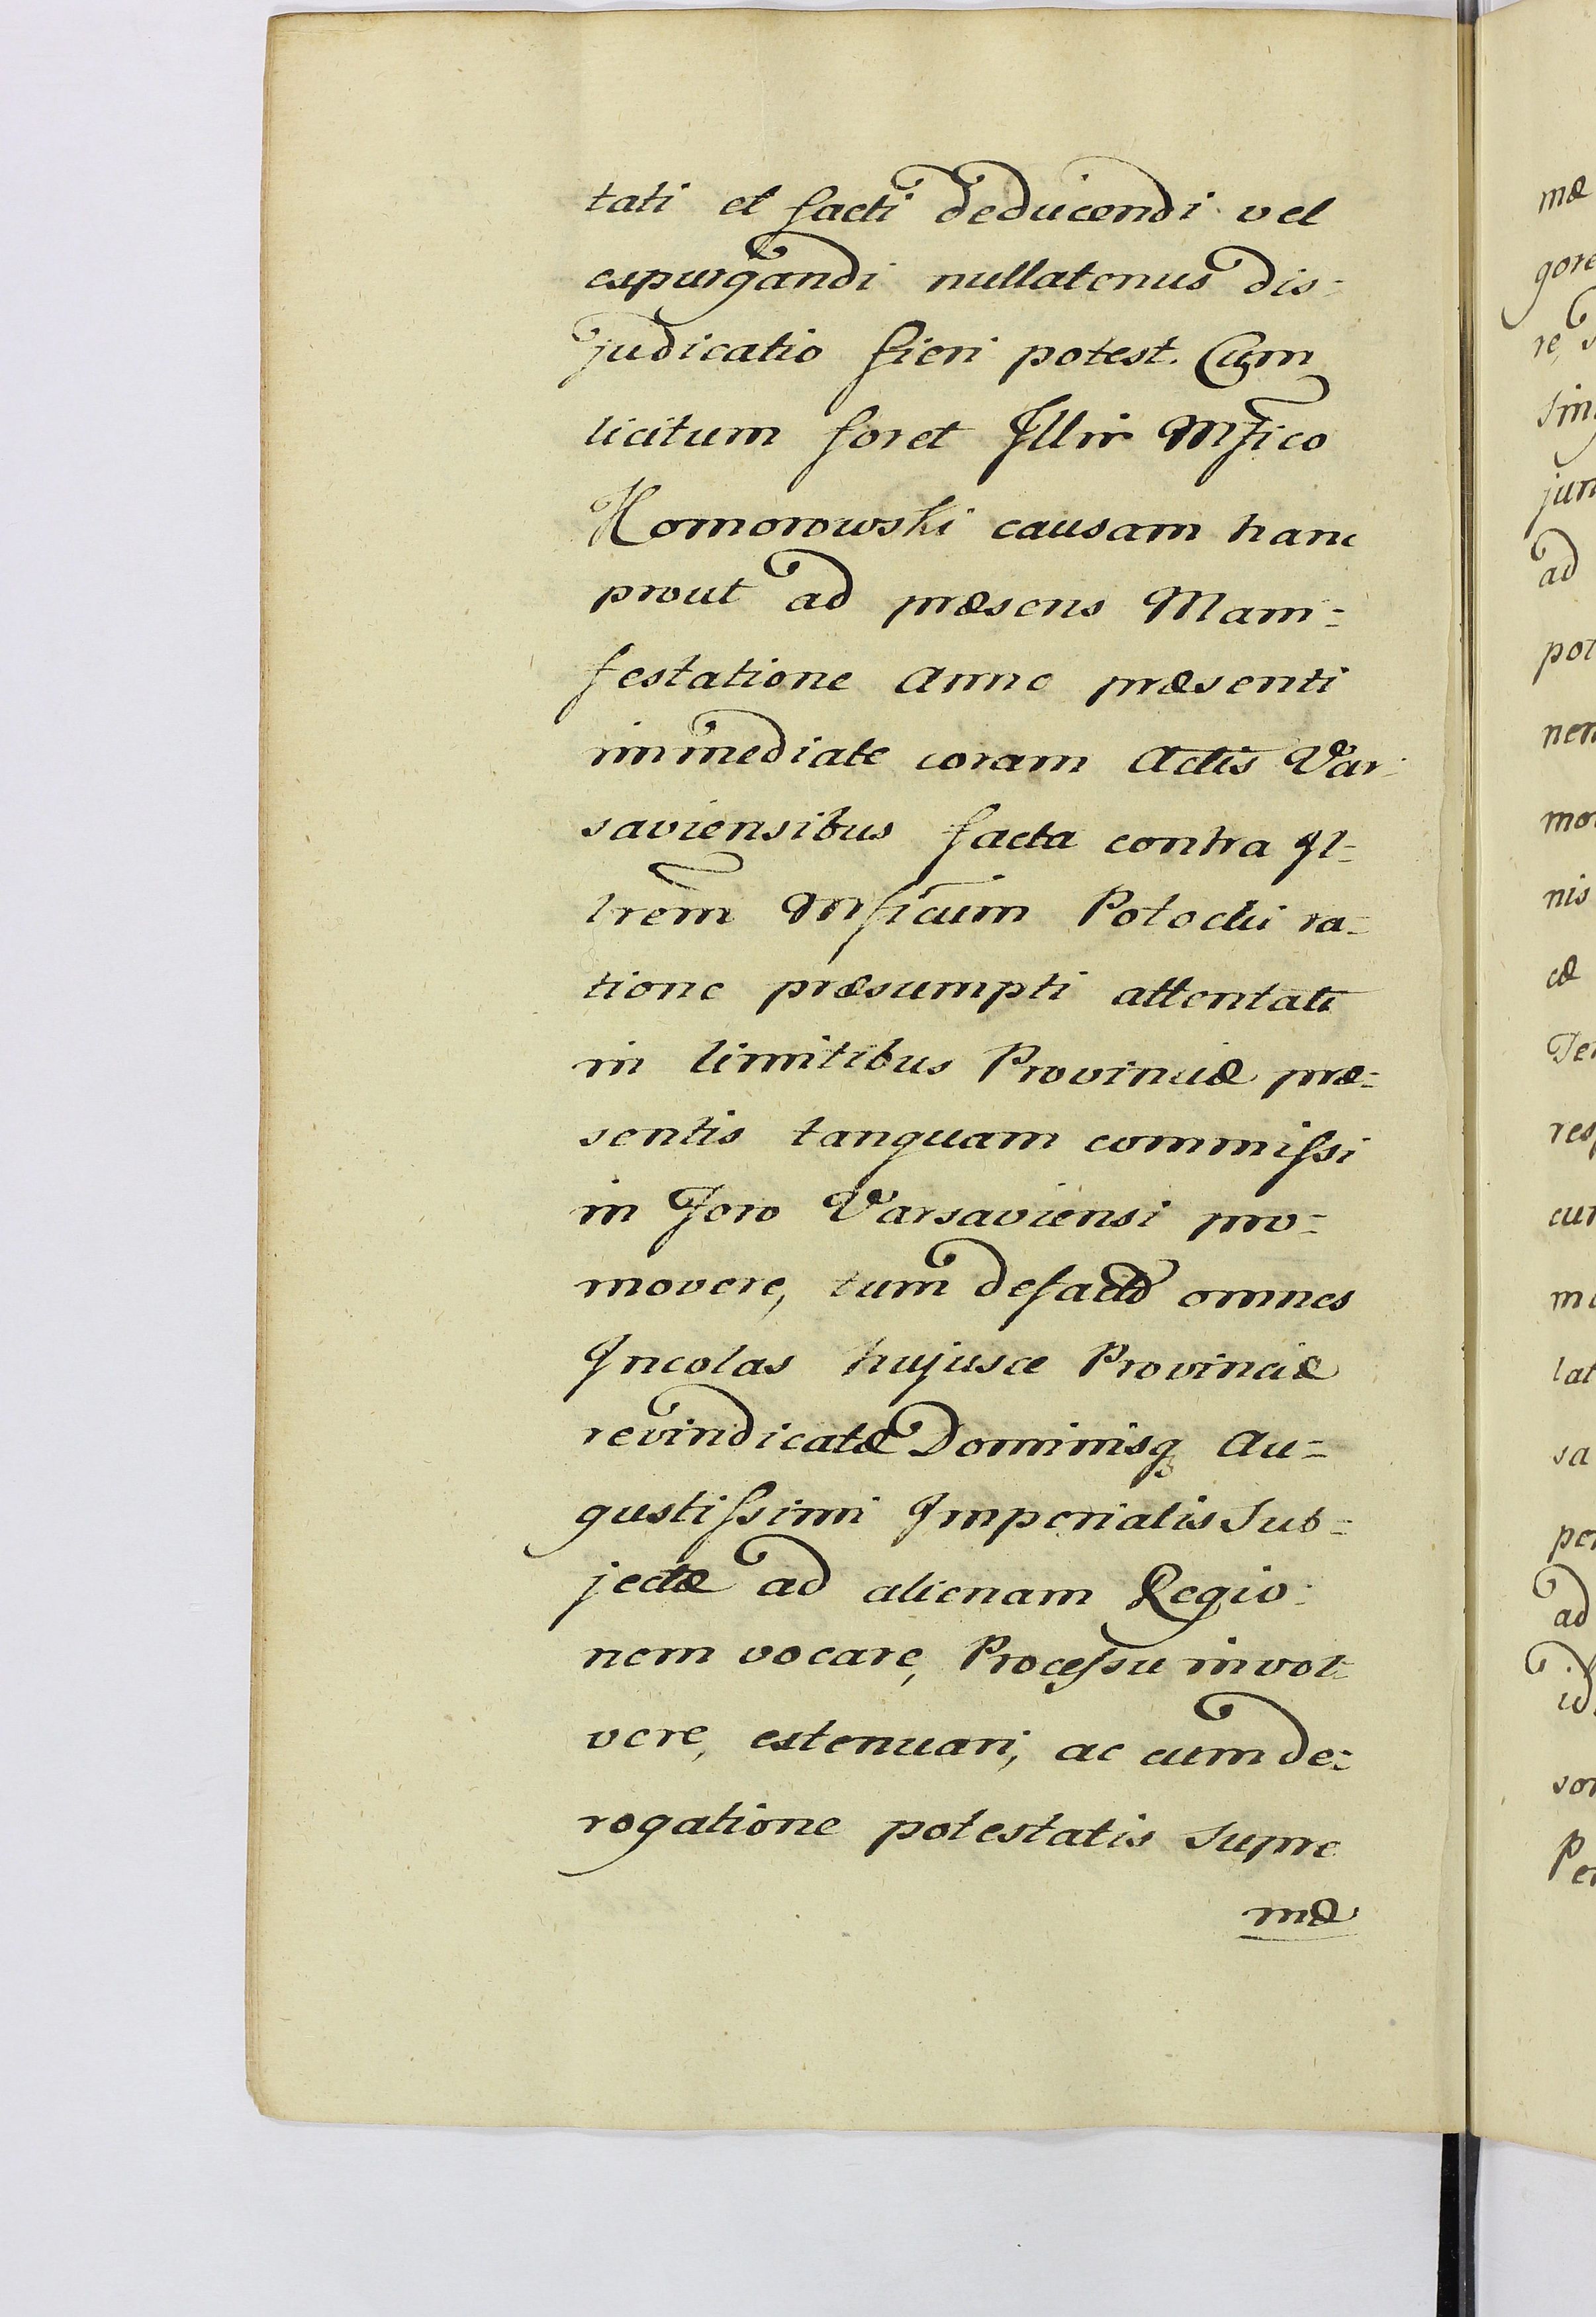 tati et facti deducendi vel
expurgandi nullatenus dis=
judicatio fieri potest. Cum
licitum foret Illri Mfico
Komorowski causam hanc
prout ad præsens Mani=
festatione Anno præsenti
immediate coram Actis Var=
saviensibus facta contra Il=
lrem Mficum Potocki ra=
tione præsumpti attentati
in limitibus Provinciæ præ=
sentis tanquam commissi
in Foro Varsaviensi pro=
movere, tum defacto omnes
Incolas hujusce Provinciæ
revindicatæ Dominisq Au=
gustissimi Imperialis Sub=
jectæ ad alienam Regio=
nem vocare, Processu invol=
vere, extenuari, ac cum de=
rogatione potestatis Supre
mæ
mæ
gore
re,
sin
jun
ad
pot
nen
mo
nis
cæ
Te
res
cur
mi
lat
sa
per
ad
id
son
Per